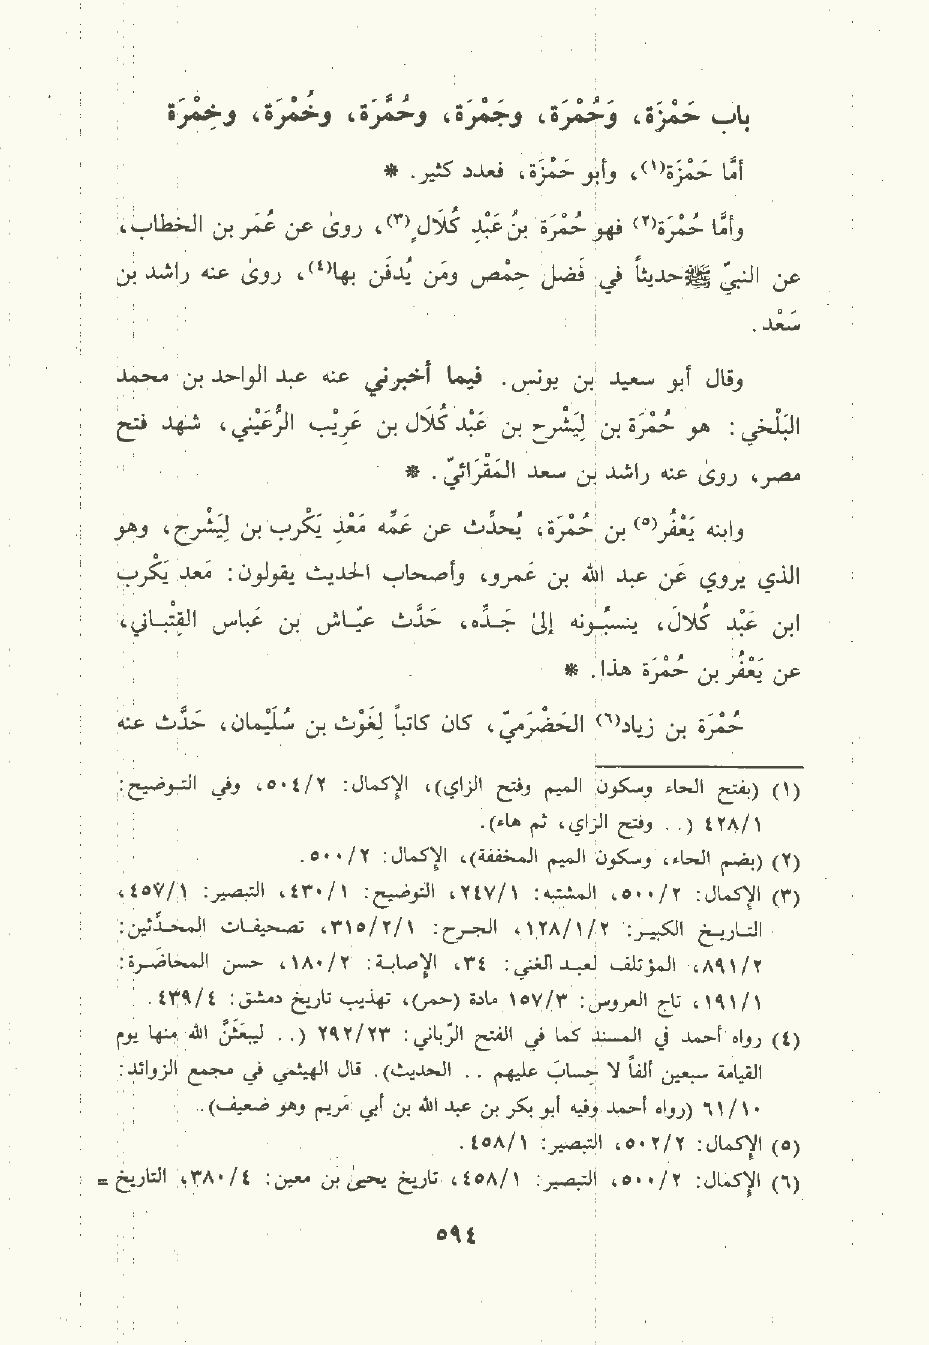 باب حَمْزَة، وَحُمْرَة، وجَمْرَة، وحُمَّرَة، وخُمْرَة، وخِمْرَة
أمّا حَمْزَة(١)، وأبو حَمْزَة، فعدد كثير. *
وأمّا حُمْرَة(٢) فهو حُمْرَة بنُ عَبْدِ كُلَال(٣)، روىٰ عن عُمَر بن الخطاب،
عن النبيّ ﷺ حديثاً في فَضل حِمْص ومَن يُدفَن بها(٤)، روىٰ عنه راشد بن
سَعْد.
وقال أبو سعيد بن يونس. فيما أخبرني عنه عبد الواحد بن محمد
البَلْخي: هو حُمْرَة بن لِيَشْرح بن عَبْد كُلَال بن عَرِيْب الرُّعَيْني، شهد فتح
مصر، روىٰ عنه راشد بن سعد المَقْرَائيّ. *
وابنه يَعْفُر(٥) بن حُمْرَة، يُحدِّث عن عَمِّه مَعْدِ يَكْرب بن لِيَشْرح، وهو
الذي يروي عَن عبد الله بن عَمرو، وأصحاب الحديث يقولون: مَعد يَكْرِب
ابن عَبْد كُلَال، ينسبُونه إلىٰ جَدِّه، حَدَّث عيّاش بن عَباس القِتْبَاني،
عن يَعْفُر بن حُمْرَة هذا. *
حُمْرَة بن زياد(٦) الحَضْرَميّ، كان كاتباً لِغَوْث بن سُلَيْمان، حَدَّث عنه
(١) (بفتح الحاء وسكون الميم وفتح الزاي)، الإكمال: ٥٠٤/٢، وفي التوضيح:
٤٢٨/١ (.. وفتح الزاي، ثم هاء).
(٢) (بضم الحاء، وسكون الميم المخففة)، الإكمال: ٥٠٠/٢.
(٣) الإكمال: ٥٠٠/٢، المشتبه: ٢٤٧/١، التوضيح: ٤٣٠/١، التبصير: ٤٥٧/١،
التاريخ الكبير: ١٢٨/١/٢، الجرح: ٣١٥/٢/١، تصحيفات المحدّثين:
٨٩١/٢، المؤتلف لعبد الغني: ٣٤، الإصابة: ١٨٠/٢، حسن المحاضرة:
١٩١/١، تاج العروس: ١٥٧/٣ مادة (حمر)، تهذيب تاريخ دمشق: ٤٣٩/٤.
(٤) رواه أحمد في المسند كما في الفتح الرّباني: ٢٩٢/٢٣ (.. ليَبعَثَنَّ الله منها يوم
القيامة سبعين ألفاً لا حِسابَ عليهم .. الحديث). قال الهيثمي في مجمع الزوائد:
٦١/١٠ (رواه أحمد وفيه أبو بكر بن عبد الله بن أبي مَريم وهو ضعيف)..
(٥) الإكمال: ٥٠٢/٢، التبصير: ٤٥٨/١.
(٦) الإكمال: ٥٠٠/٢، التبصير: ٤٥٨/١، تاريخ يحيىٰ بن معين: ٣٨٠/٤، التاريخ =
٥٩٤